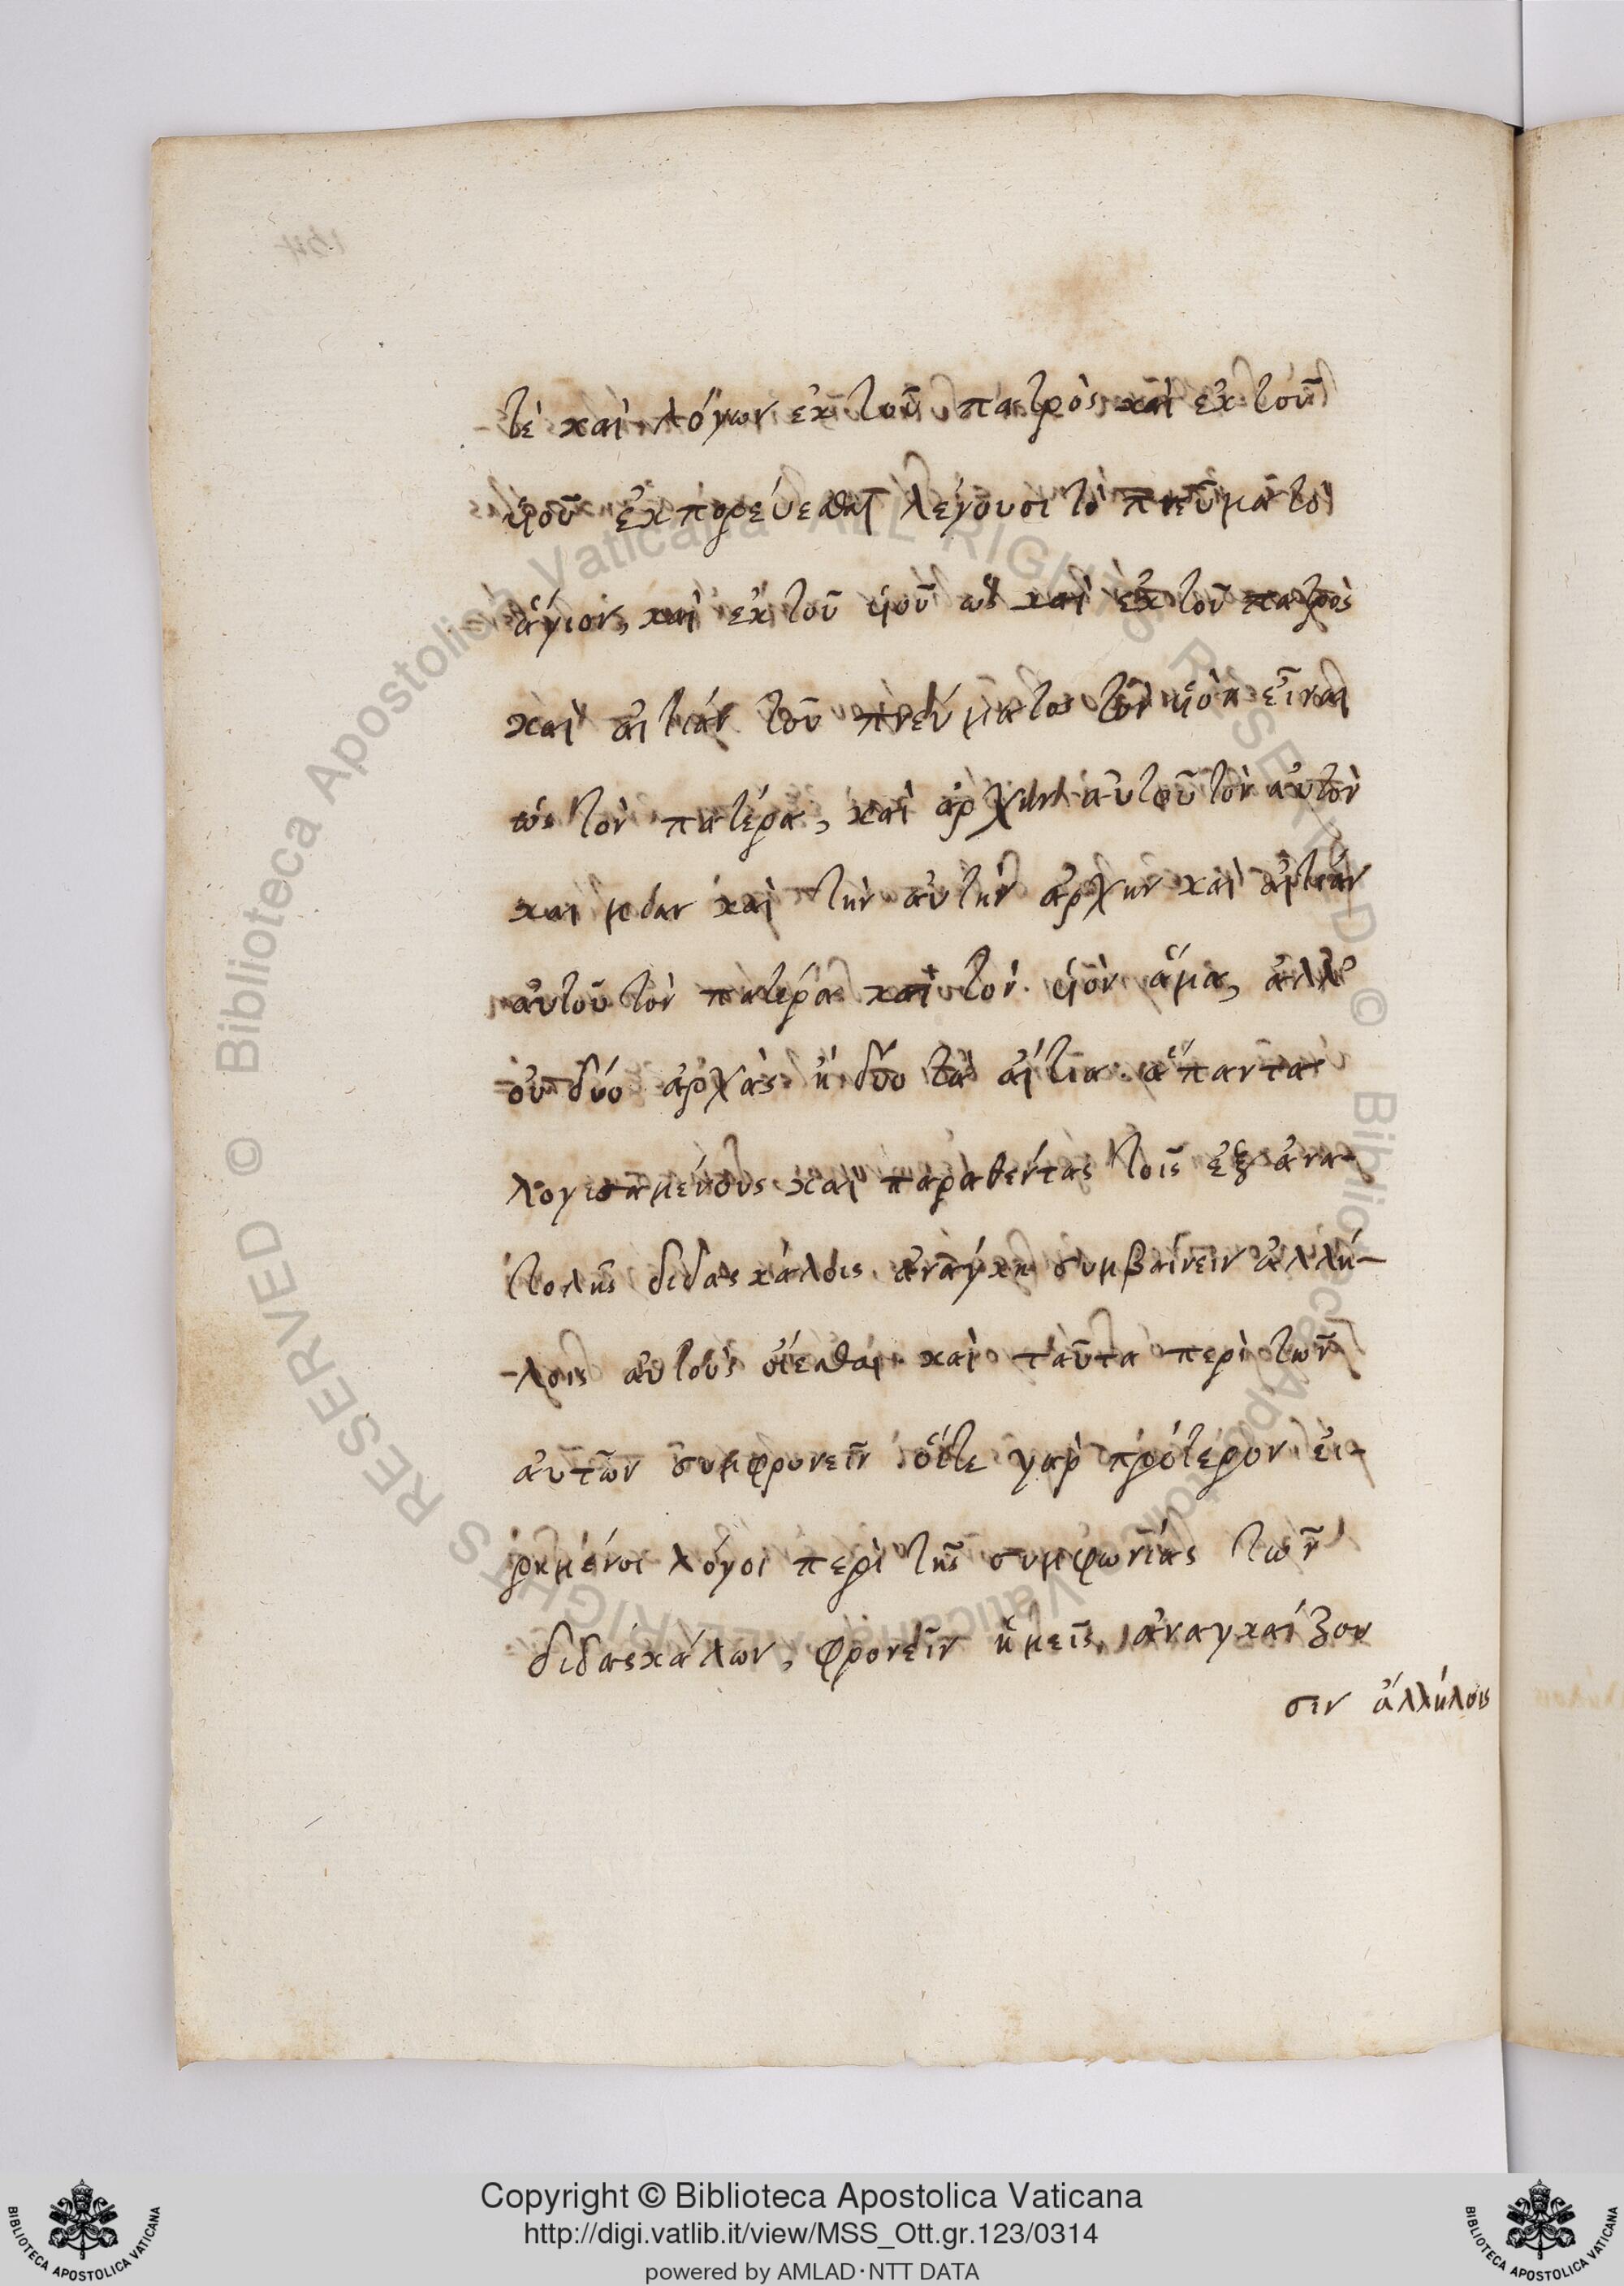 τὲ καὶ λόγων ἐκ τοῦ πατρὸς καὶ ἐκ τοῦ
ὑιοῦ ἐκπορεύεσθαι λέγουσι τὸ πνεῦμα τὸ
ἅγιον, καὶ ἐκ τοῦ ὑιοῦ ὡς καὶ ἐκ τοῦ πατρὸς
καὶ αἰτίαν τοῦ πνεύματος τὸν ὑιὸν εἶναι
ὡς τὸν πατέρα, καὶ ἀρχὴν αὐτοῦ τὸν αὐτὸν
καὶ μίαν καὶ τὴν αὐτὴν ἀρχὴν καὶ αἰτίαν
αὐτοῦ τὸν πατέρα καὶ τὸν ὑιὸν ἅμα, ἀλλ'
οὐ δύο ἀρχὰς ἢ δύο τὰ αἴτια. ἅπαντα
λογισαμένους καὶ παραθέντας τοῖς ἐξ ἀνα-
τολῆς διδασκάλοις ἀνάγκη συμβαίνειν ἀλλή-
-λοις αὐτοὺς οἴεσθαι καὶ ταῦτα περὶ τῶν
αὐτῶν συμφρονεῖν. οἵτε γὰρ πρότερον εἰ-
ρημένοι λόγοι περὶ τῆς συμφωνίας τῶν
διδασκάλων, φρονεῖν ἡμεῖς ἀναγκαίζου
σιν ἀλλήλοις
Copyright © Biblioteca Apostolica Vaticana
http://digi.vatlib.it/view/MSS_Ott.gr.123/0314
powered by AMLAD·NTT DATA